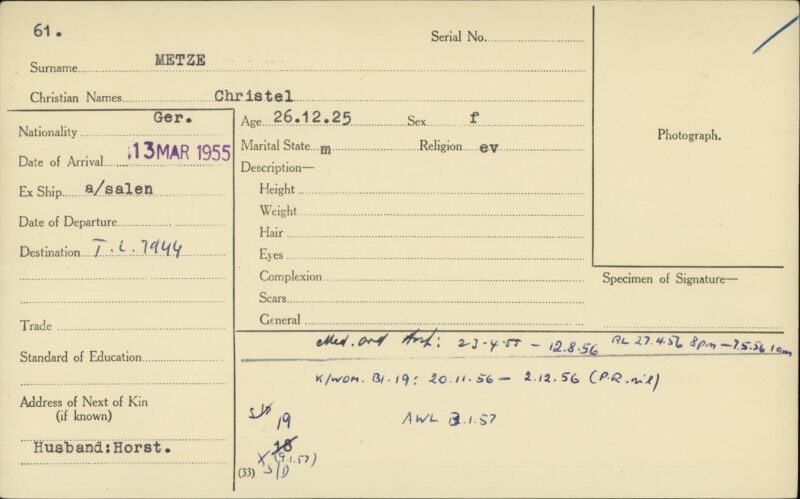 61.
Serial No.
Surname METZE
Christian Names Christel
Nationality Ger.
Age 26.12.25 Sex f
Date of Arrival 13 MAR 1955
Marital State m Religion ev
Ex Ship a/salen
Description—
Height
Weight
Date of Departure
Hair
Destination T.L. 7944
Eyes
Complexion
Scars
General
Trade
Standard of Education
Address of Next of Kin
(if known)
Husband:Horst.
Photograph.
Specimen of Signature—
Med. ord : 23-4-55 - 12.8.56 RL 27.4.56 8pm - 7.5.56 1am
K/WOM. Bl. 19: 20.11.56 - 2.12.56 (P.R. nil)
S/D 19 AWL 3.1.57
18
X (9.1.57)
(33) S/D